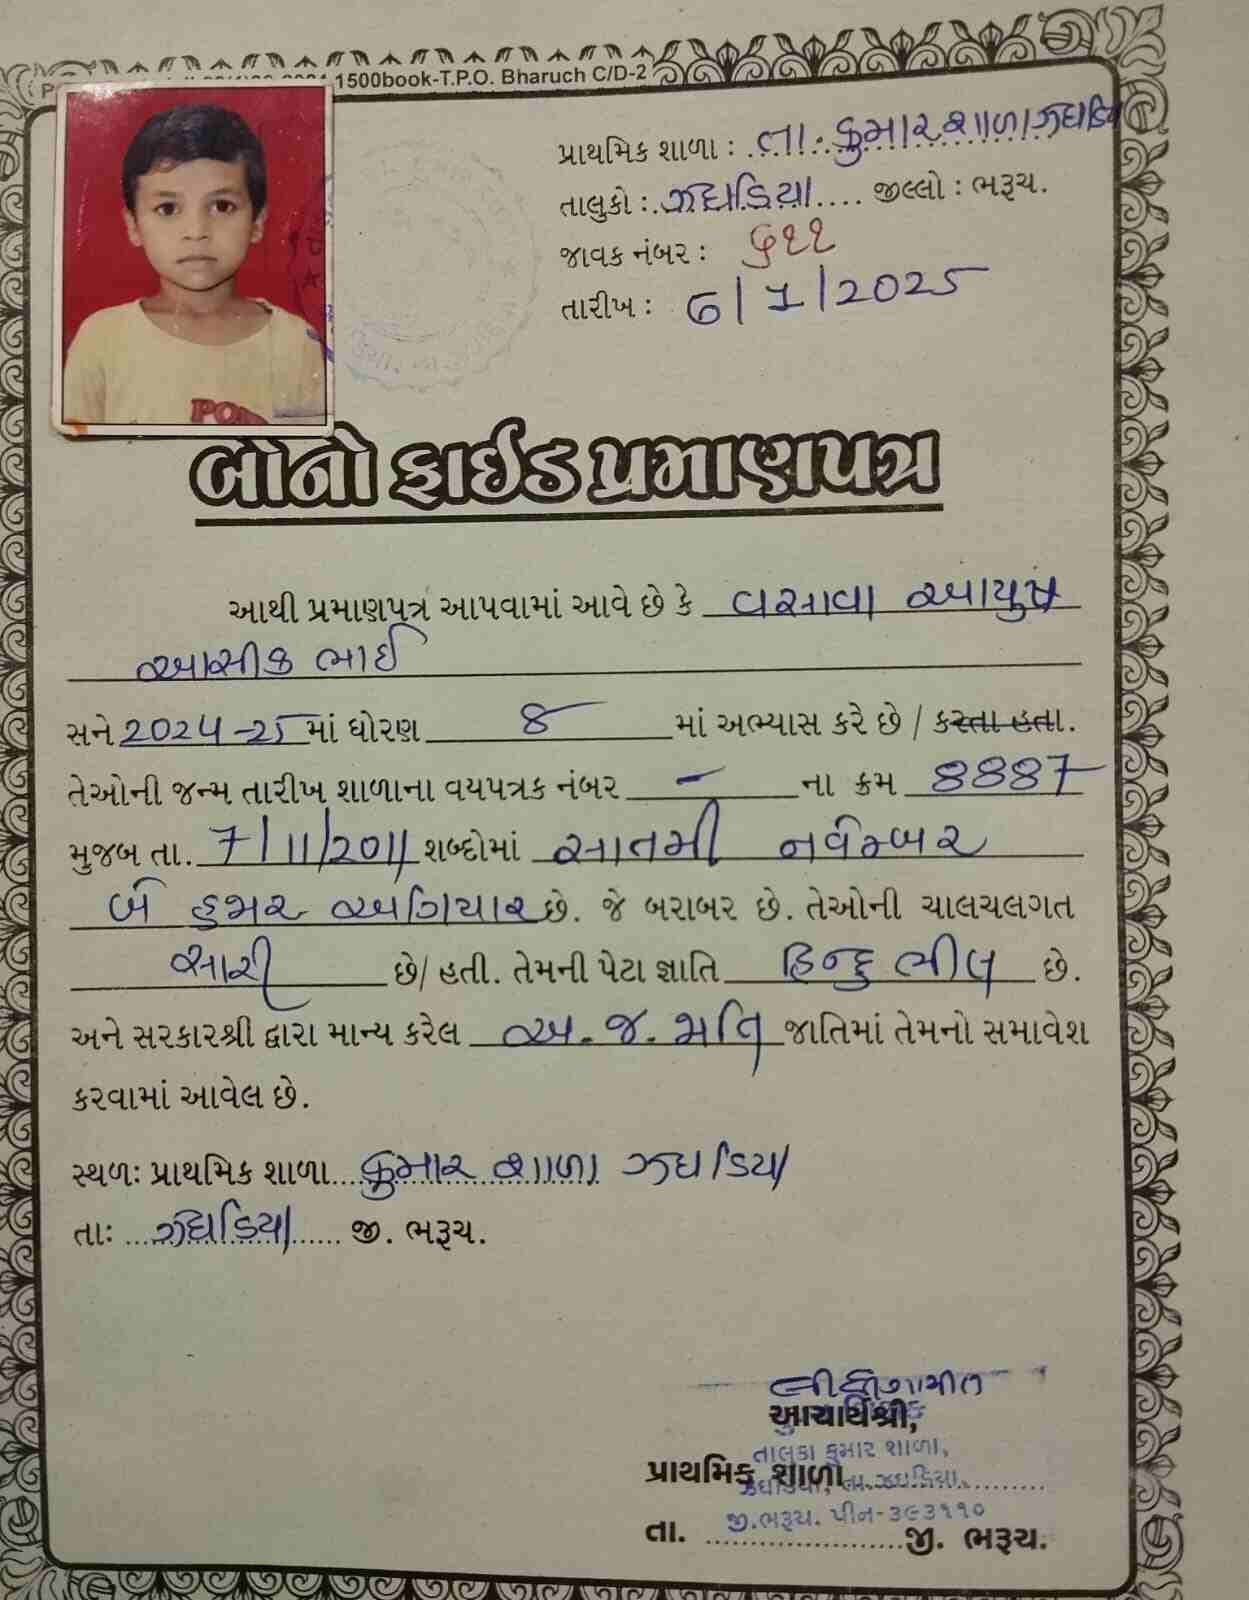 1500book-T.P.O. Bharuch C/D-2
પ્રાથમિક શાળા : તા. કુમાર શાળા ઝઘડિયા
તાલુકો : ઝઘડિયા .... જીલ્લો : ભરૂચ.
જાવક નંબર : ૬૧૧
તારીખ : 6/1/2025
બોનોફાઈડ પ્રમાણપત્ર
આથી પ્રમાણપત્ર આપવામાં આવે છે કે વસાવા આયુષ
આસીક ભાઈ
સને 2024-25 માં ધોરણ ૪ માં અભ્યાસ કરે છે / કરતા હતા.
તેઓની જન્મ તારીખ શાળાના વયપત્રક નંબર - ના ક્રમ 8887
મુજબ તા. 7/11/2011 શબ્દોમાં સાતમી નવેમ્બર
બે હજાર અગિયાર છે. જે બરાબર છે. તેઓની ચાલચલગત
સારી છે/ હતી. તેમની પેટા જ્ઞાતિ હિન્દુ ભીલ છે.
અને સરકારશ્રી દ્વારા માન્ય કરેલ અ.જ.જાતિ જાતિમાં તેમનો સમાવેશ
કરવામાં આવેલ છે.
સ્થળઃ પ્રાથમિક શાળા કુમાર શાળા ઝઘડિયા
તાઃ ઝઘડિયા જી. ભરૂચ.
આચાર્યશ્રી,
તાલુકા કુમાર શાળા,
પ્રાથમિક શાળા
ઝઘડિયા, તા. ઝઘડિયા,
જી.ભરૂચ. પીન-૩૯૩૧૧૦
તા. ....................જી. ભરૂચ.